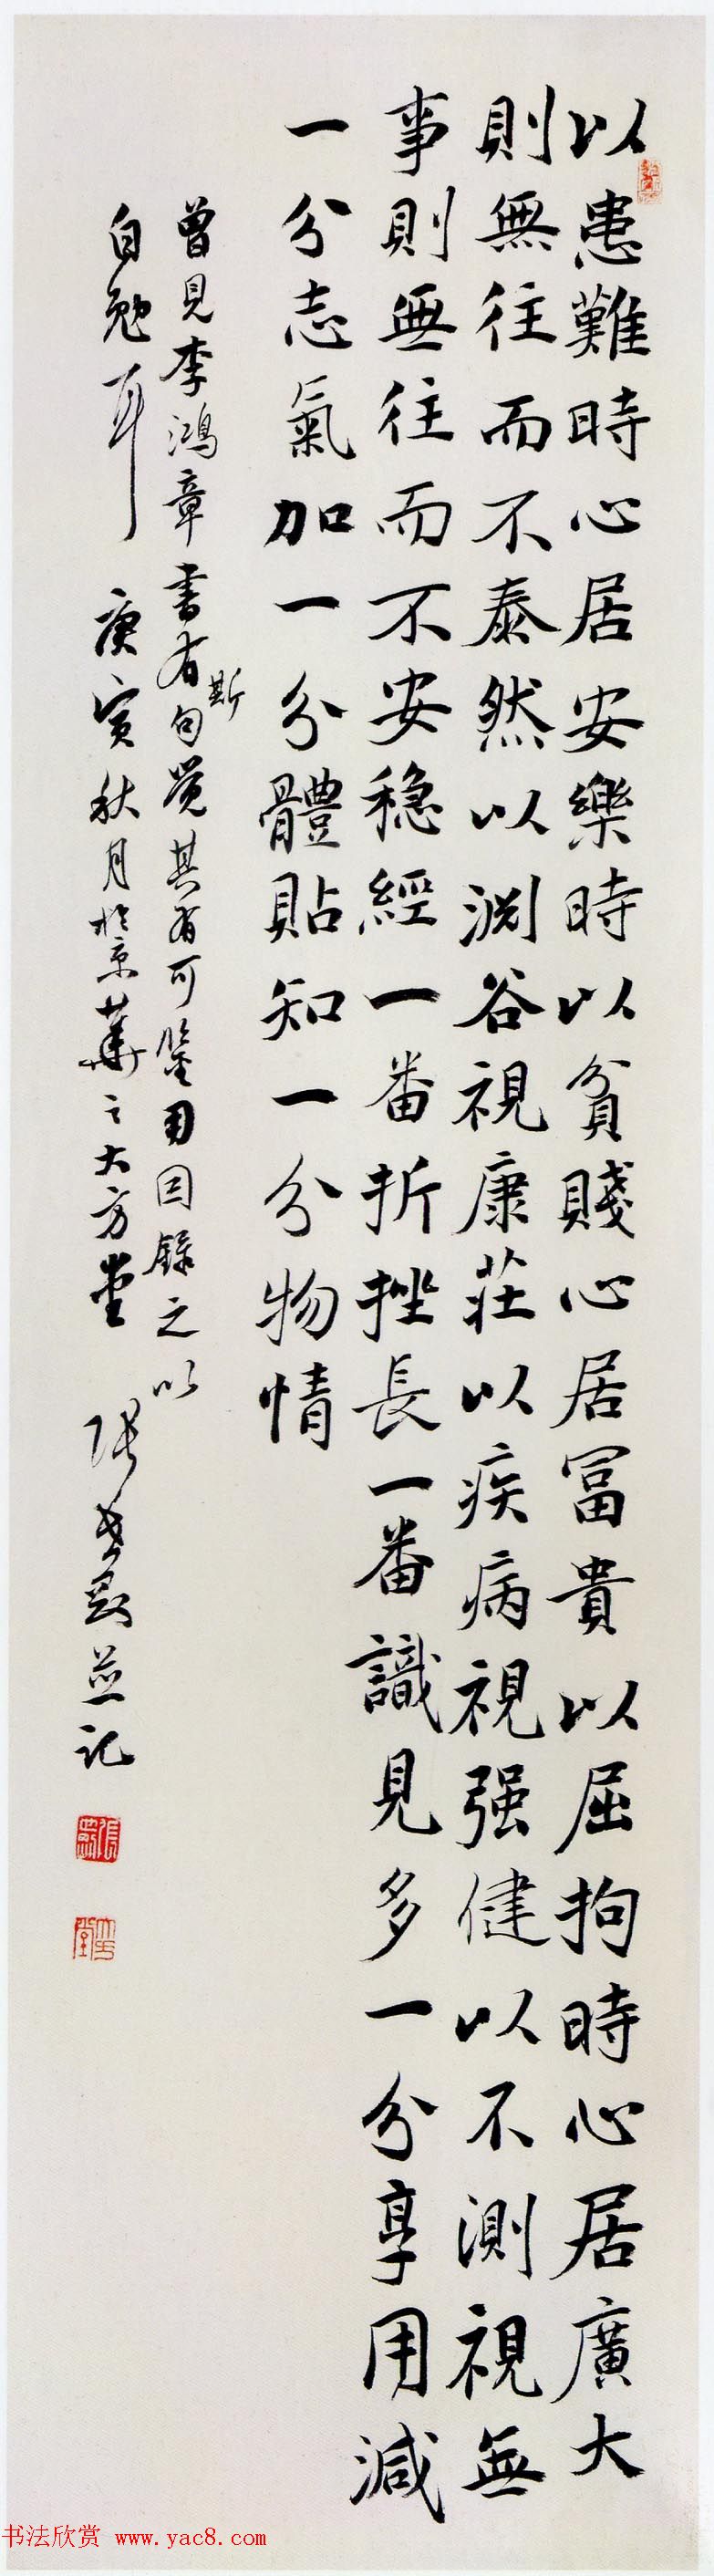 以患難時心居安樂時以貧賤心居冨貴以屈拘時心居廣大
則無往而不泰然以淵谷視康莊以疾病視强健以不測視無
事則無往而不安穩經一番折挫長一番識見多一分享用減
一分志氣加一分體貼知一分物情
曾見李鴻章書有斯句覺其有可鑒用因錄之以
自勉耳 庚寅秋月於京華之大方堂 張志並记
书法欣赏 www.yac8.com